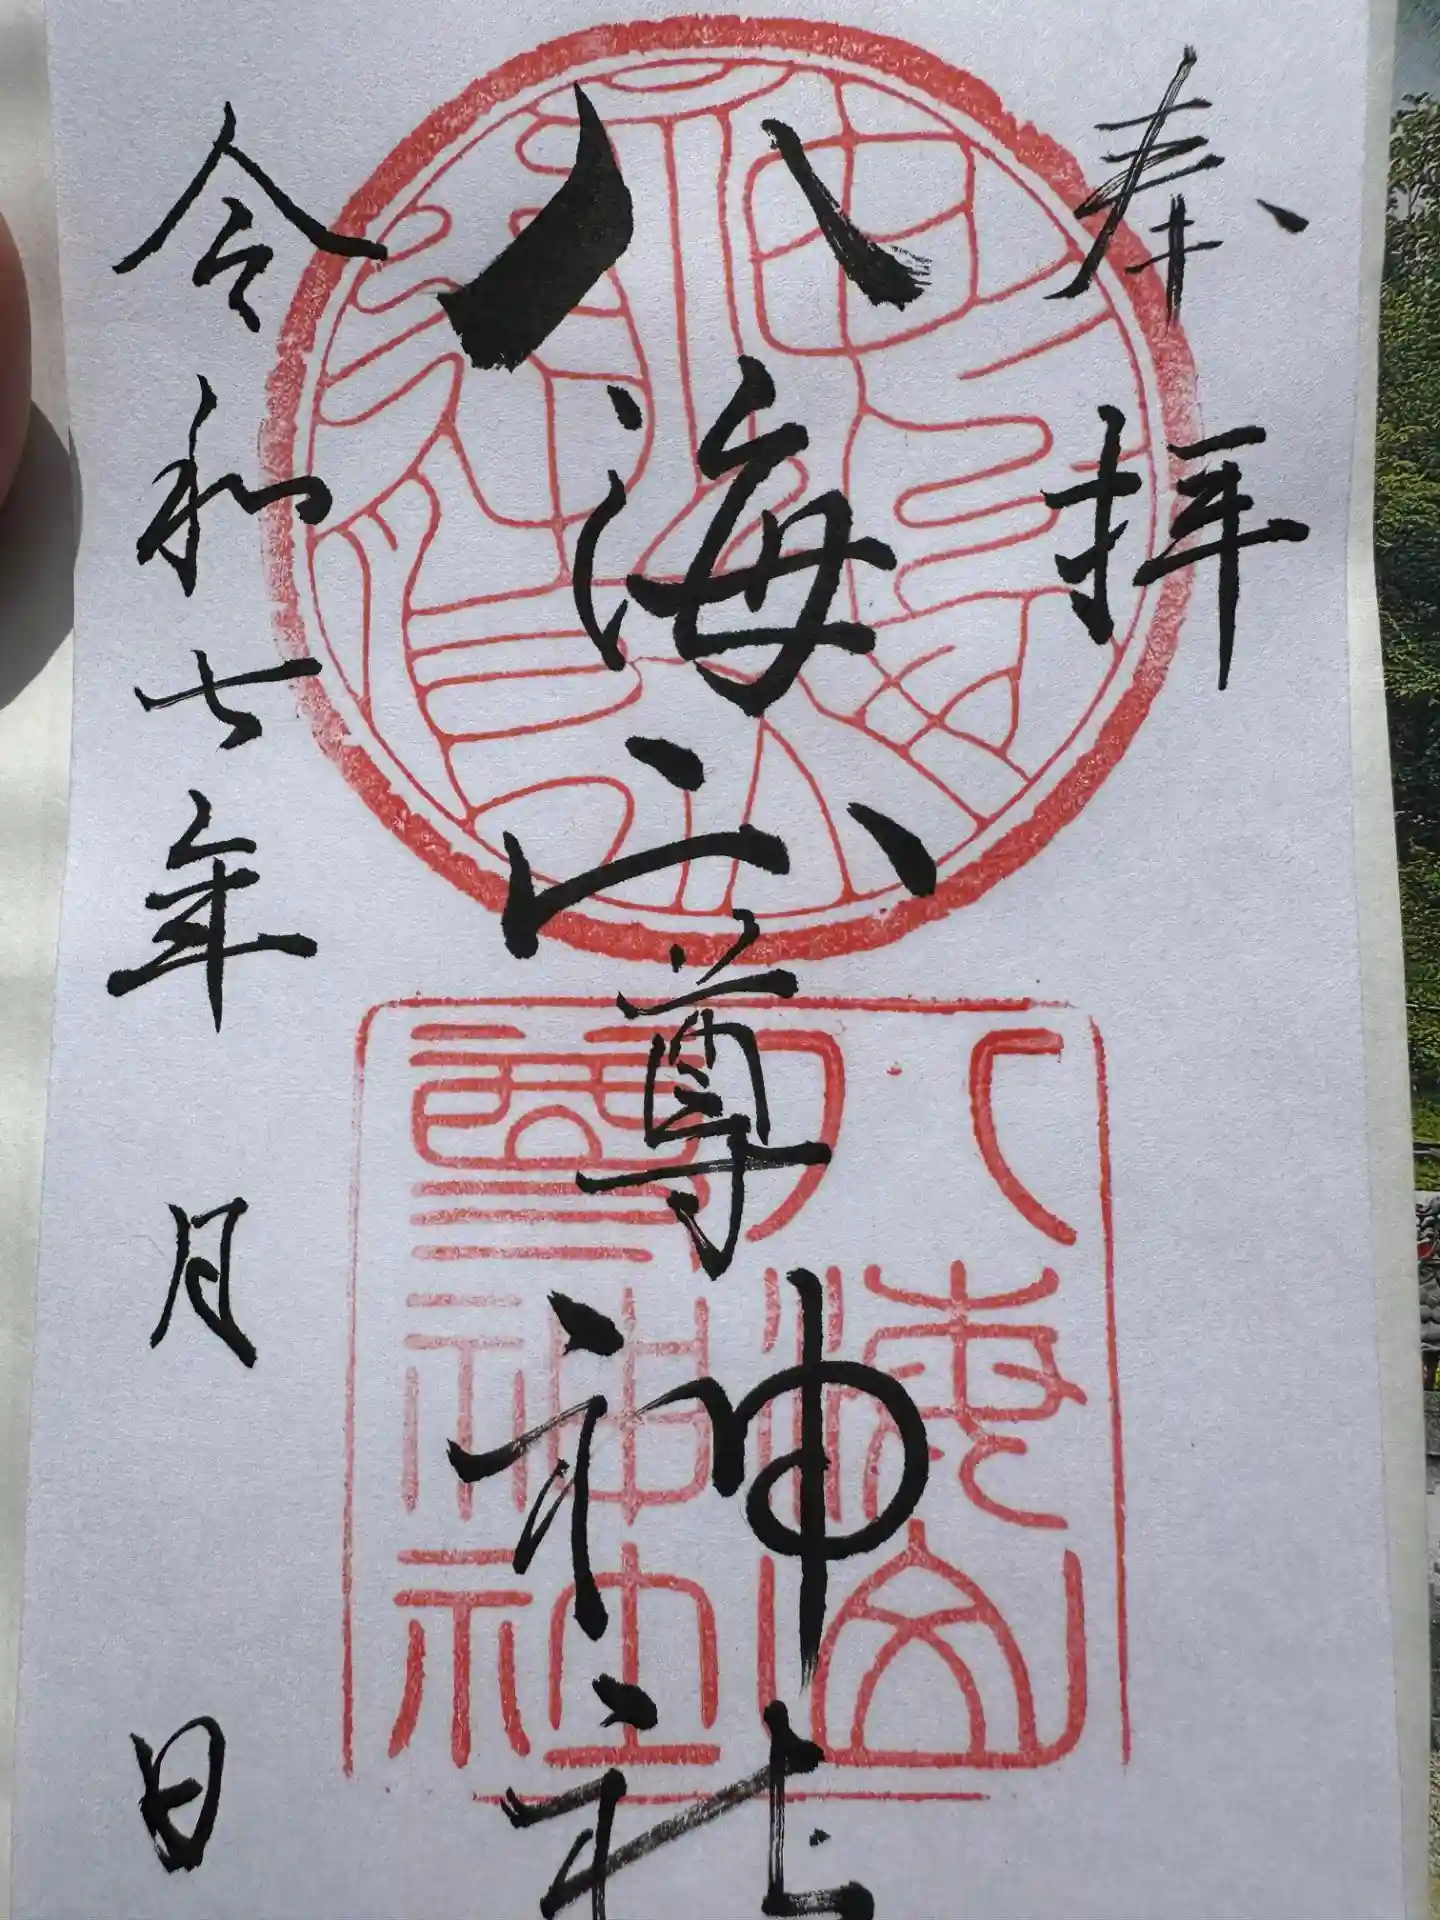 奉拝
八海山尊神社
令和七年 月 日
八海山
尊神社